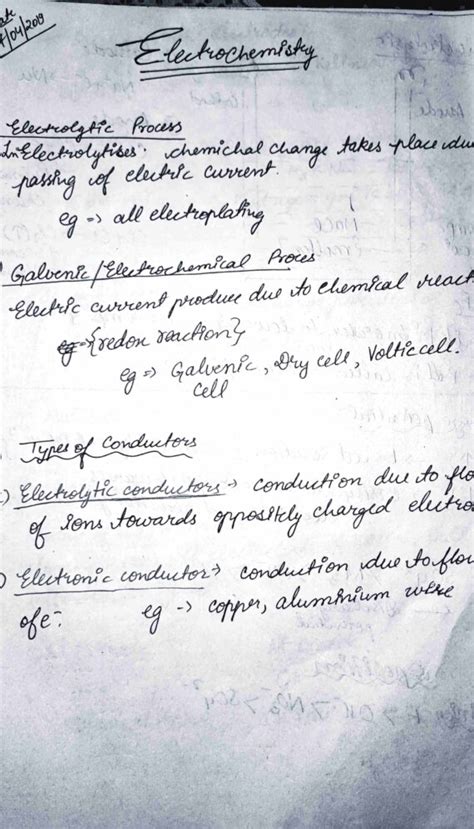 Electrochemistry
Electrolytic Process
In Electrolytises: chemichal change takes place
passing of electric current.
eg => all electroplating
Galvenic/Electrochemical Proces
Electric current produce due to chemical react
eg => {redox reaction}
eg => Galvenic, Dry cell, Voltic cell.
cell
Types of conductors
Electrolytic conductors → conduction due to flo
of ions towards oppositely charged electro
Electronic conductor → conduction due to flow
of e-. eg → copper, aluminium wire